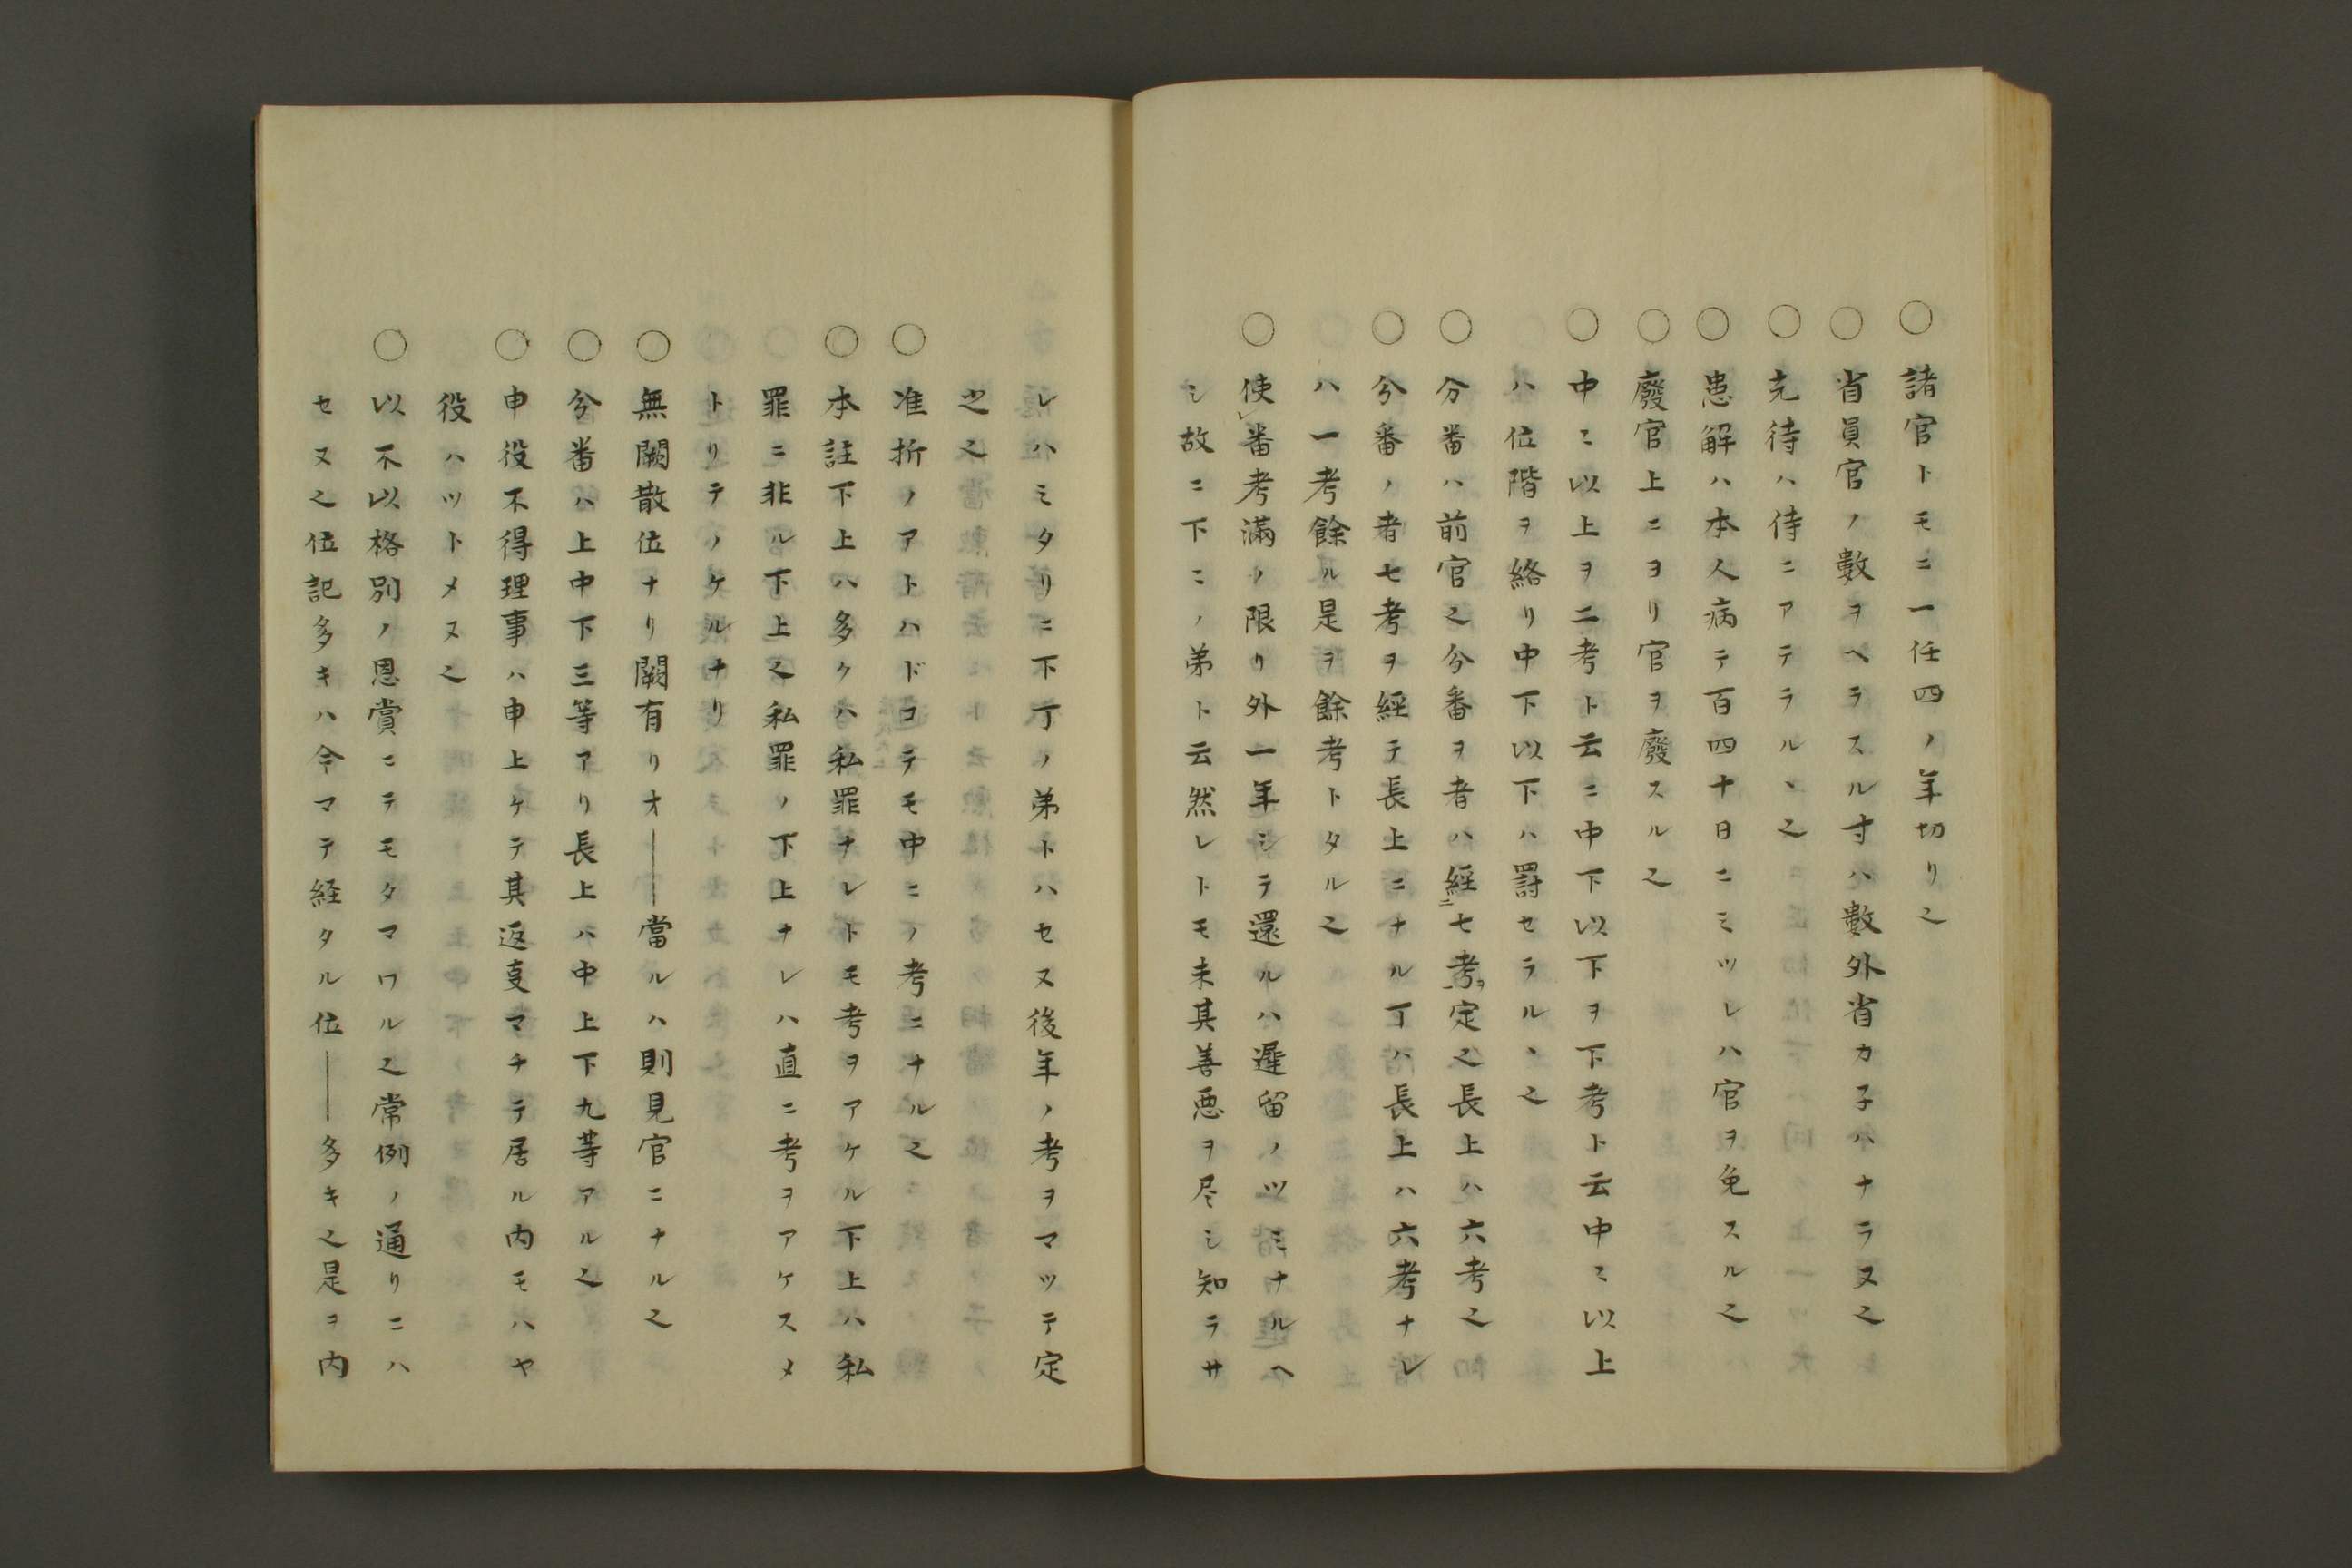 ○諸官トモニ一任四ノ年切リ之
○省員官ノ數ヲヘラスル寸ハ數外省カ子ハナラヌ之
○充待ハ侍ニアテラルヽ之
○患解ハ本人病テ百四十日ニミツレハ官ヲ免スル之
○廢官上ニヨリ官ヲ廢スル之
○中々以上ヲ二考ト云ニ中下以下ヲ下考ト云中々以上
ハ位階ヲ絡リ中下以下ハ罸セラルヽ之
○分番ハ前官之分番ヲ者ハ經ニ七考ヲ定之長上ハ六考之
○分番ノ者七考ヲ經テ長上ニナル丁ハ長上ハ六考ナレ
ハ一考餘ル是ヲ餘考トタル之
○使レ番考滿ノ限リ外一年シテ還ルハ遲留ノツミナルヘ
シ故ニ下ニノ弟ト云然レトモ未其善悪ヲ尽シ知ラサ
レハミタリニ下丁ノ弟トハセヌ後年ノ考ヲマツテ定
㞢之
○准折ノアトハドコテモ中ニノ考ニナル之
○本註下上ハ多クハ私罪ナレトモ考ヲアケル下上ハ私
罪ニ非ル下上之私罪ノ下上ナレハ直ニ考ヲアケスメ
トリテノケルナリ
○無闕散位ナリ闕有リオ——當ルハ則見官ニナル之
○分番ハ上中下三等アリ長上ハ中上下九等アル之
○申役不得理事ハ申上ケテ其返叓マチテ居ル内モハヤ
役ハツトメヌ之
○以不以格別ノ恩賞ニテモタマワル之常例ノ通リニハ
セヌ之位記多キハ今マテ経タル位——多キ之是ヲ内